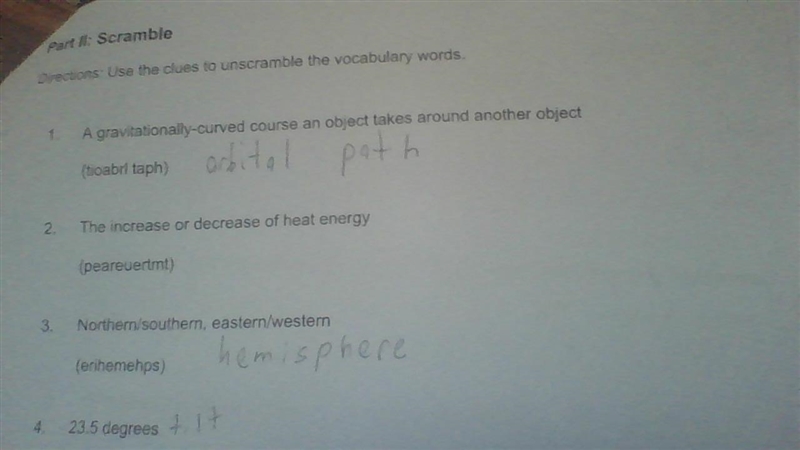 Part II: Scramble
Directions: Use the clues to unscramble the vocabulary words.
1. A gravitationally-curved course an object takes around another object
(tioabrl taph) orbital path
2. The increase or decrease of heat energy
(peareuertmt)
3. Northern/southern, eastern/western
(erihemehps) hemisphere
4. 23.5 degrees tilt